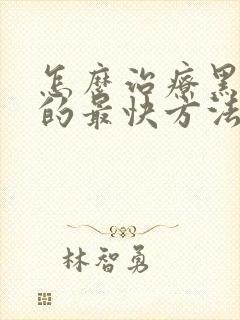 怎麼治療黑
的最快方法
林智勇